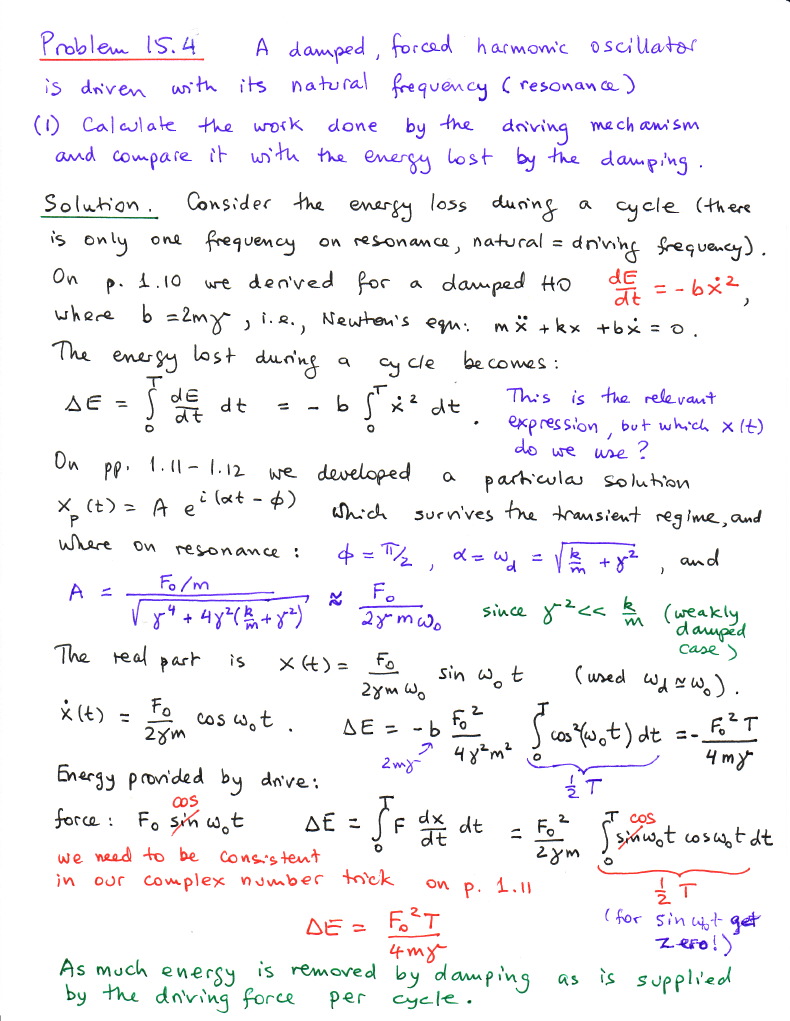 Problem 15.4 A damped, forced harmonic oscillator
is driven with its natural frequency (resonance)
(1) Calculate the work done by the driving mechanism
and compare it with the energy lost by the damping.
Solution. Consider the energy loss during a cycle (there
is only one frequency on resonance, natural = driving frequency).
On p. 1.10 we derived for a damped HO dE/dt = -bẋ²,
where b = 2mγ, i.e., Newton's eqn: mẍ + kx + bẋ = 0.
The energy lost during a cycle becomes:
ΔE = ∫₀ᵀ dE/dt dt = - b ∫₀ᵀ ẋ² dt.
This is the relevant
expression, but which x(t)
do we use?
On pp. 1.11-1.12 we developed a particular solution
xₚ(t) = A e^{i(αt - φ)} which survives the transient regime, and
where on resonance: φ = π/2, α = ω_d = √(k/m + γ²), and
A = (F₀/m) / √(γ⁴ + 4γ²(k/m + γ²)) ≈ F₀ / (2γmω₀) since γ² << k/m (weakly
damped
case)
The real part is x(t) = F₀/(2γmω₀) sin ω₀t (used ω_d ≃ ω₀).
ẋ(t) = F₀/(2γm) cos ω₀t. ΔE = -b F₀²/(4γ²m²) ∫₀ᵀ cos²(ω₀t) dt = - F₀²T/(4mγ)
2mγ
½ T
Energy provided by drive:
cos
force: F₀ sin ω₀t ΔE = ∫₀ᵀ F dx/dt dt = F₀²/(2γm) ∫₀ᵀ sinω₀t cosω₀t dt
cos
we need to be consistent
in our complex number trick on p. 1.11
½ T
(for sin ω₀t get
zero!)
ΔE = F₀²T/(4mγ)
As much energy is removed by damping as is supplied
by the driving force per cycle.